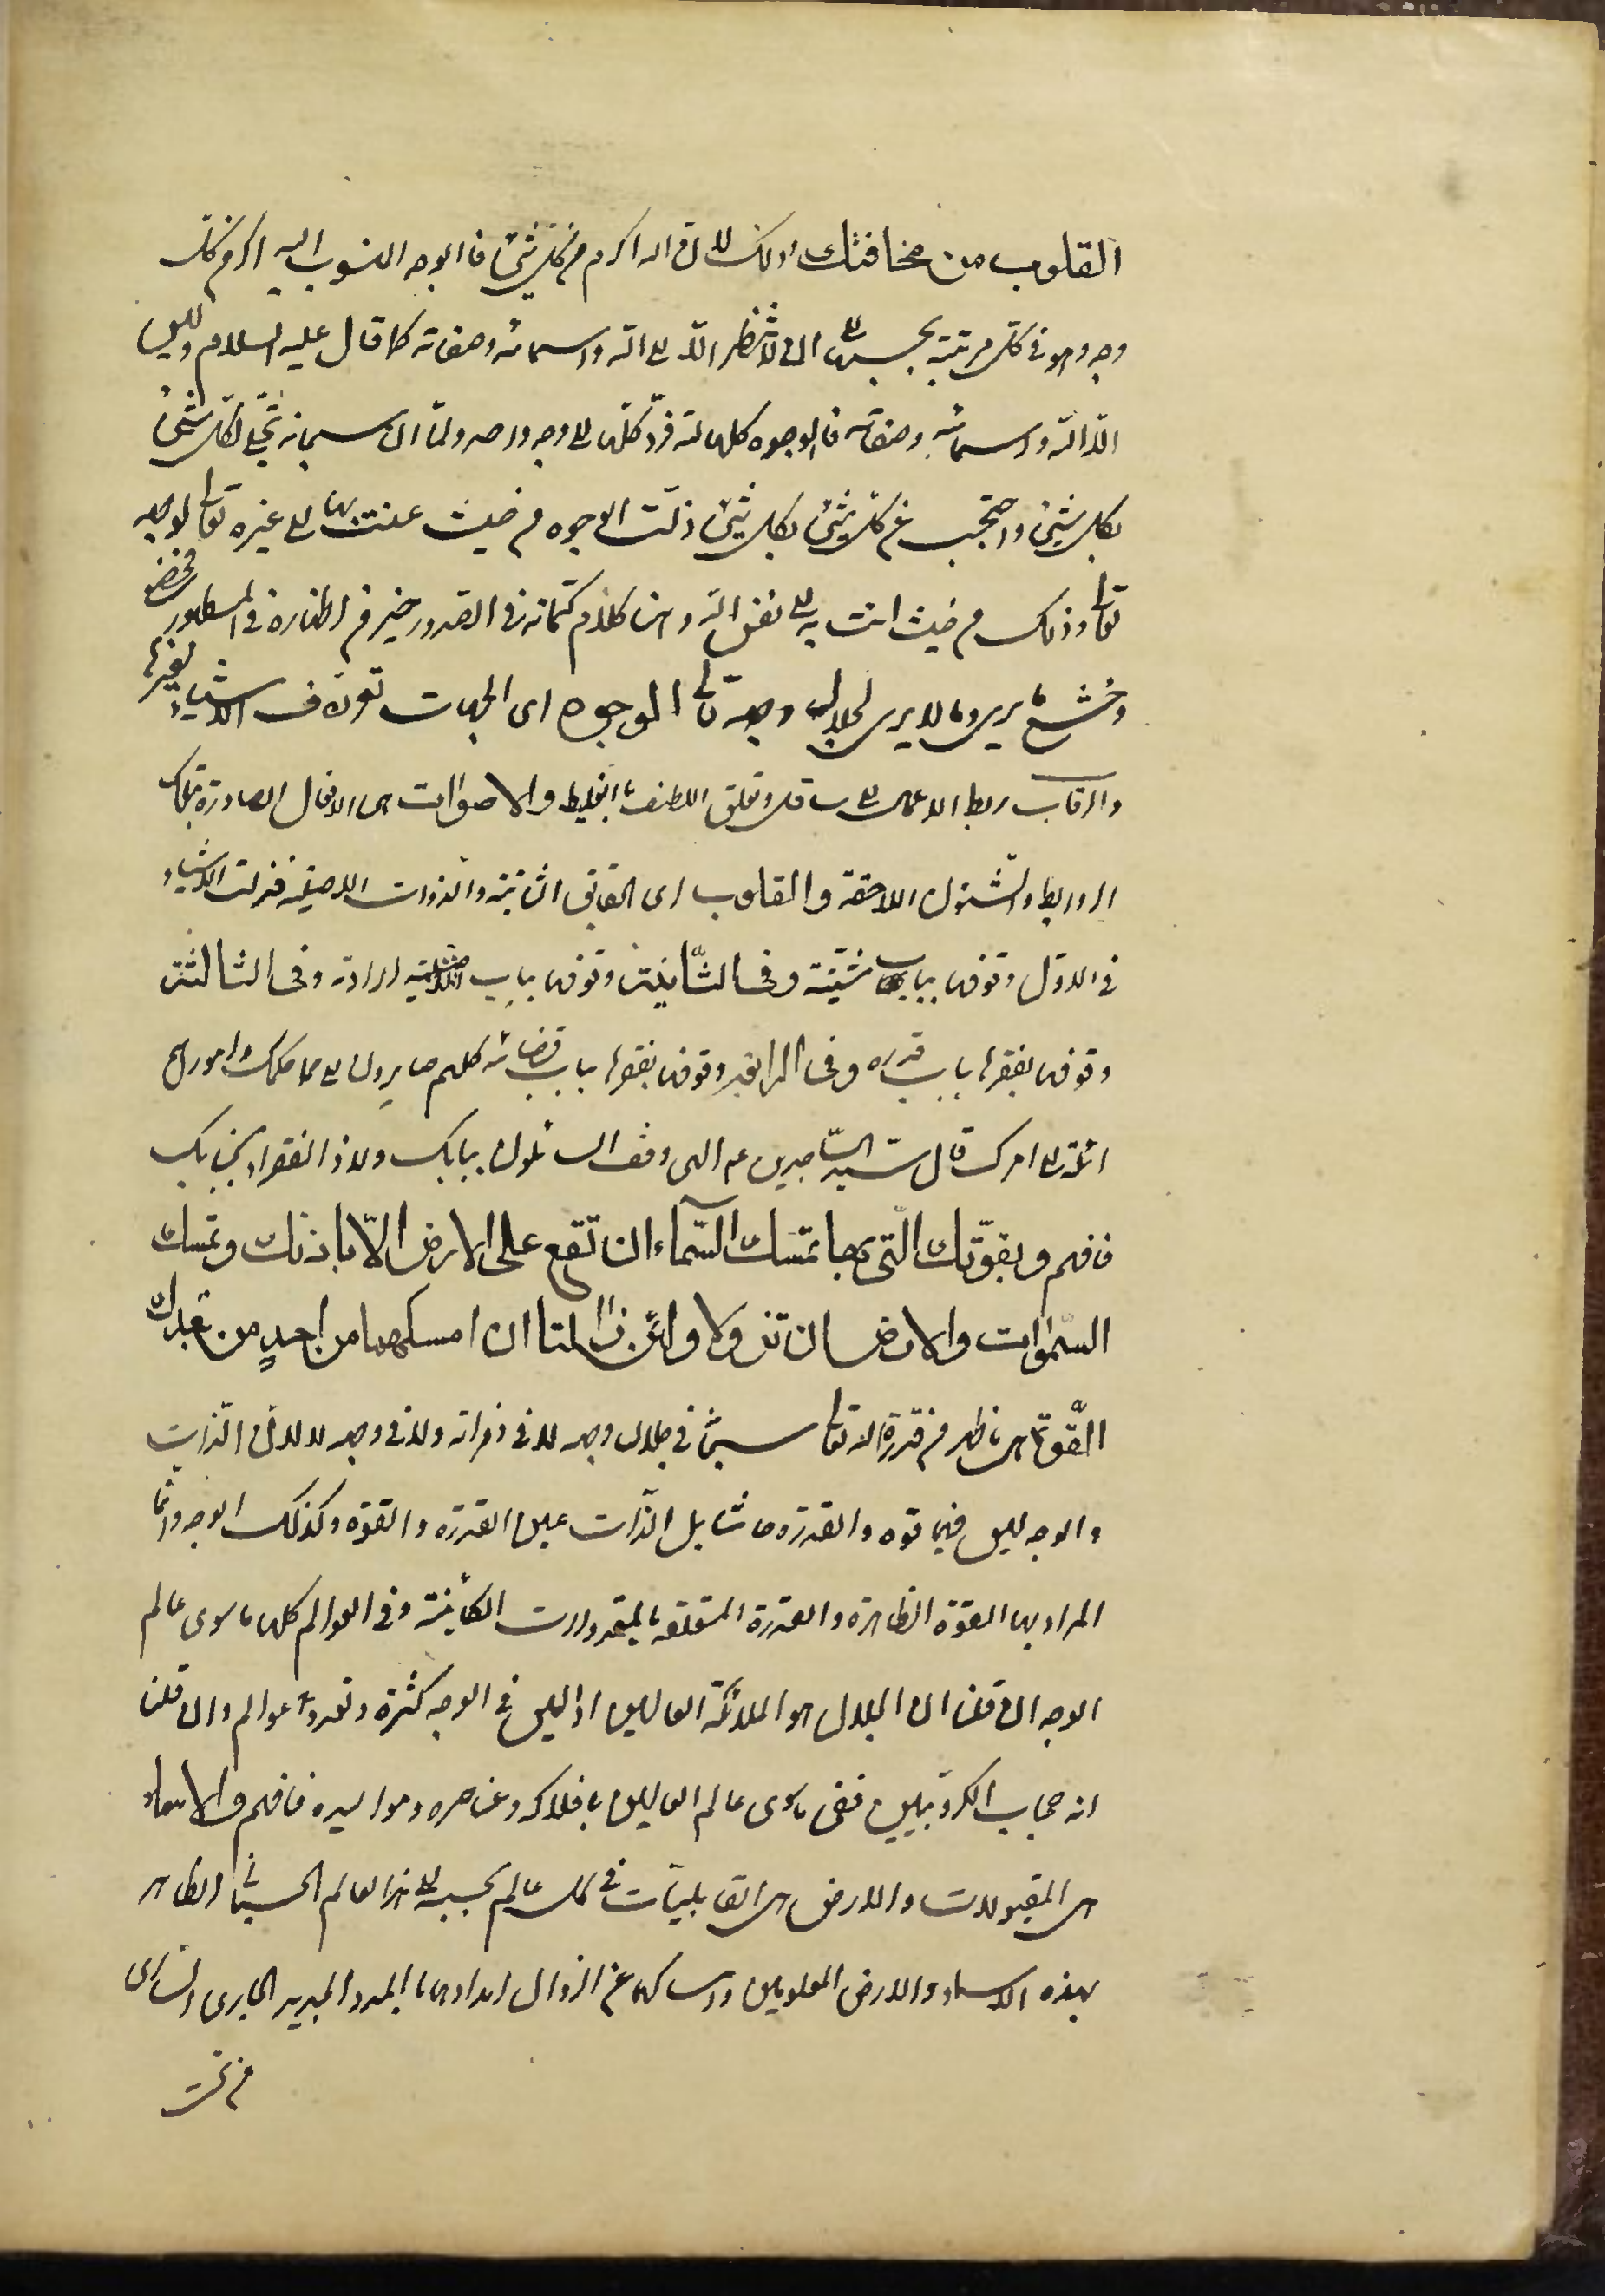 القلوب من مخافتك وذلك لان الله اكرم من كل شئ فالوجه المنسوب اليه اكرم كل
وجه وهو في كل مرتبة بحسبها الى ان لا تنظر الا الى الله واسمائه وصفاته كما قال عليه السلام وليس
الا الله واسمائه وصفاته فالوجوه كلها لله فرد كلها الى وجه واحد ولما ان سبحانه تجلى لكل شئ
بكل شئ واحتجب عن كل شئ بكل شئ ذلت الوجوه من حيث عنت بها الى غيره تعالى لوجهه
تعالى وذلك من حيث انت به الى نفس الله وهنا كلام كتمانه في الصدور خير من اظهاره في السطور فخضع
وخشع ما يرى وما لا يرى لجلال وجهه تعالى الوجوه اى الجهات تعرف الاشياء بغيرها
والرقاب ربط الاعالى الى سافل وتعلق اللطيف بالغليظ والاصوات هى الافعال الصادرة بتلك
الروابط والشئون اللاحقة والقلوب اى الحقايق الثابتة والذوات الاصيلة فذلت الاشياء
فى الاول وقوفها بباب مشيته وفى الثانيت وقوفها بباب ارادته وفى الثالثت
وقوفها بفقرها بباب قدره وفى الرابعة وقوفها بفقرها بباب قضائه كلهم صايرون الى حكمك وامورهم
ائلة الى امرك قال سيد الساجدين عم الهى وقف السائلون ببابك ولاذ الفقراء بجنابك
فافهم وبقوتك التى بها تمسك السماء ان تقع على الارض الا باذنك وتمسك
السموات والارض ان تزولا ولئن زالتا ان امسكهما من احد من بعدك
القوة هى ما ظهر من قدرة الله تعالى سبحانه في جلال وجهه لا فى ذاته ولا فى وجهه لا لان الذات
والوجه ليس فيها قوه والقدرة حاشا بل الذات عين القدرة والقوة وكذلك الوجه وانما
المراد بها القوة الظاهرة والقدرة المتعلقه بالمقدورات الكائنة وفى العوالم كلها ما سوى عالم
الوجه ان قلنا ان الجلال هو الملائكة العالين اذ ليس فى الوجه كثرة وتعدد عوالم وان قلنا
انه حجاب الكروبيين ففى ما سوى عالم العالين بافلاكه وعناصره ومواليده فافهم والاسماء
هى المقبولات والارض هى القابليات فى كل عالم بحسبه الى هذا العالم الحسبانى الظاهر
بهذه السماء والارض المعلومين وامساكها عن الزوال امدادها بالمدد الجديد الجارى السارى
من تحت